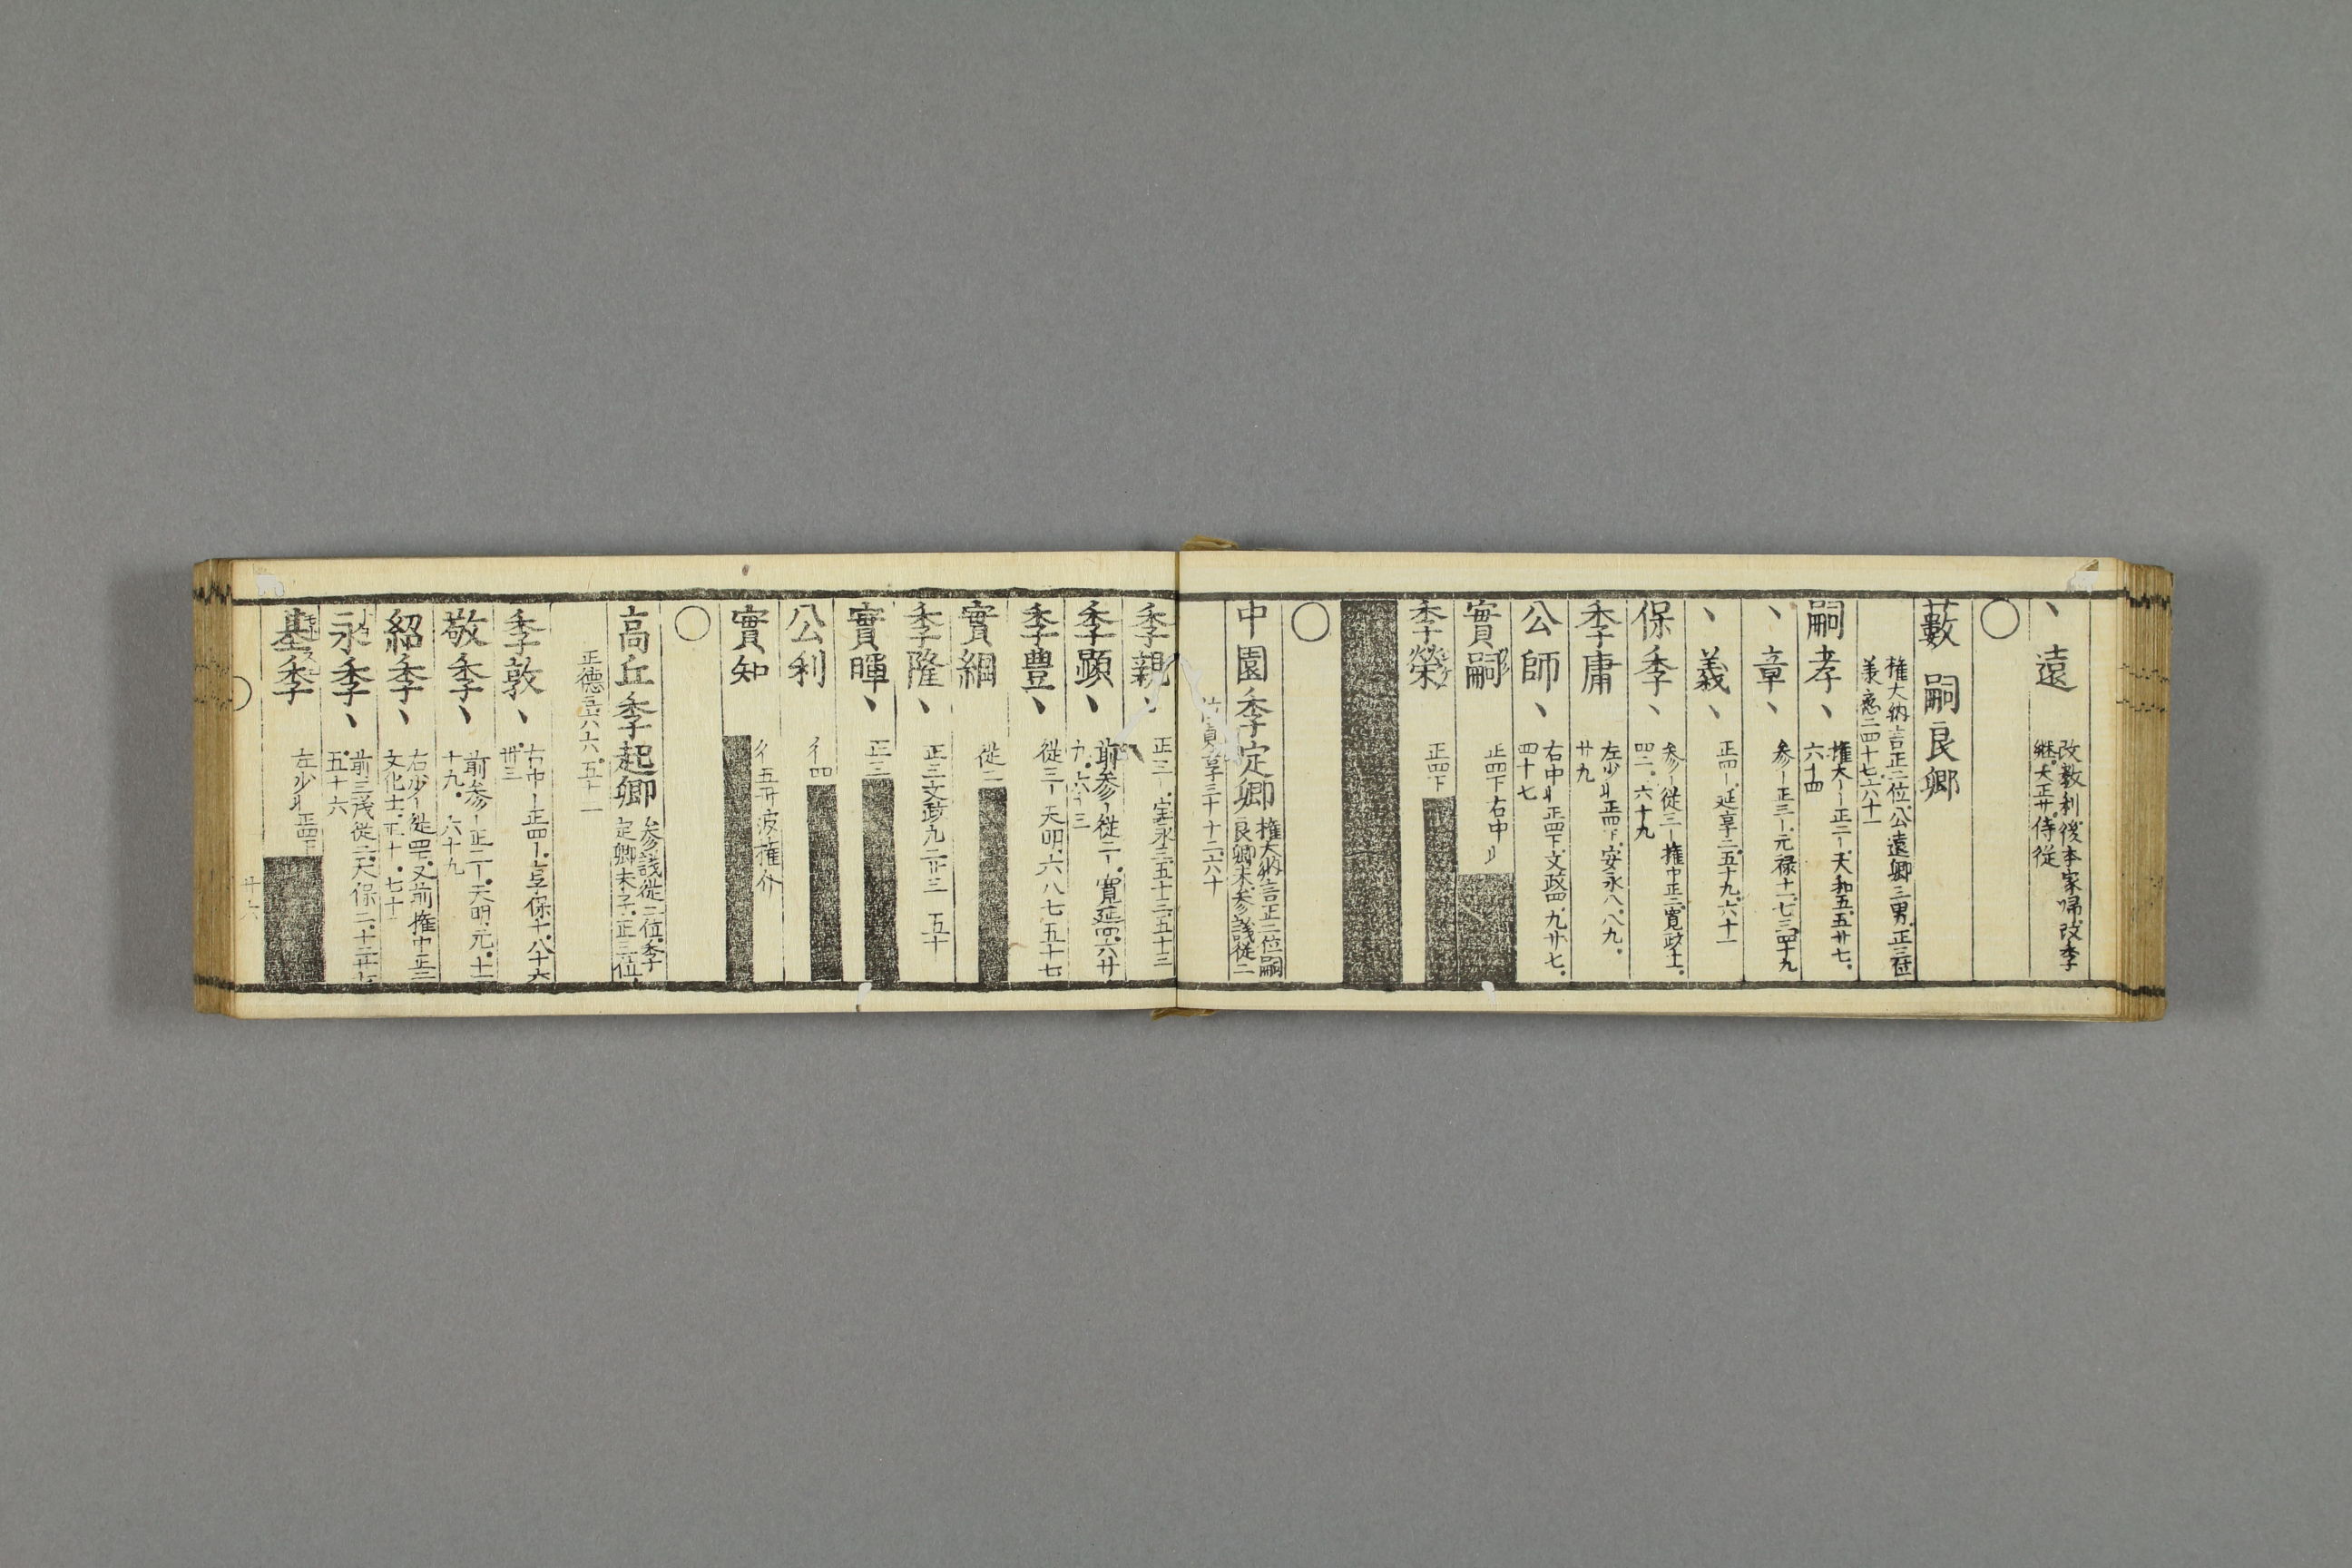 丶遠 改教利後本家帰改季
継大正廿侍従
○
藪 嗣良卿
権大納言正二位公遠卿三男正三位
義應二四十七六十一
嗣孝丶 権大ー正二ー天和五五廿七
六十四
丶章丶 参ー正三ー元禄十一七三四十九
丶義丶 正四ー延享三五十九六十一
保季丶 参ー従三ー権中正三寛政十一
四二六十九
季庸 左少〃正四下安永八八九
廿九
公師丶 右中〃正四下文政四九廿七
四十七
實嗣 正四下右中〃
季榮 正四下
○
中園季定卿 権大納言正二位嗣
良卿末参議従二
位貞享三十十二六十
季親丶 正三ー宝永三五十三五十三
季顕丶 前参ー従二ー寛延四六廿
九六十三
季豊丶 従三ー天明六八七五十七
實綱 従二
季隆丶 正三文政九二廿三 五十
實暉丶 正三
公利 彳四
實知 彳五丹波権介
○
高丘季起卿 参議従二位季
定卿末子正三位
正徳五六六五十一
季敦丶 右中ー正四ー享保十八十六
卅三
敬季丶 前参ー正二ー天明元十二
十九 六十九
紹季丶 右少ー従四下又前権中正三
文化十二正十七十
永季丶 前三茂従二天保二十二廿七
五十六
基季 左少〃正四下
○
廿六